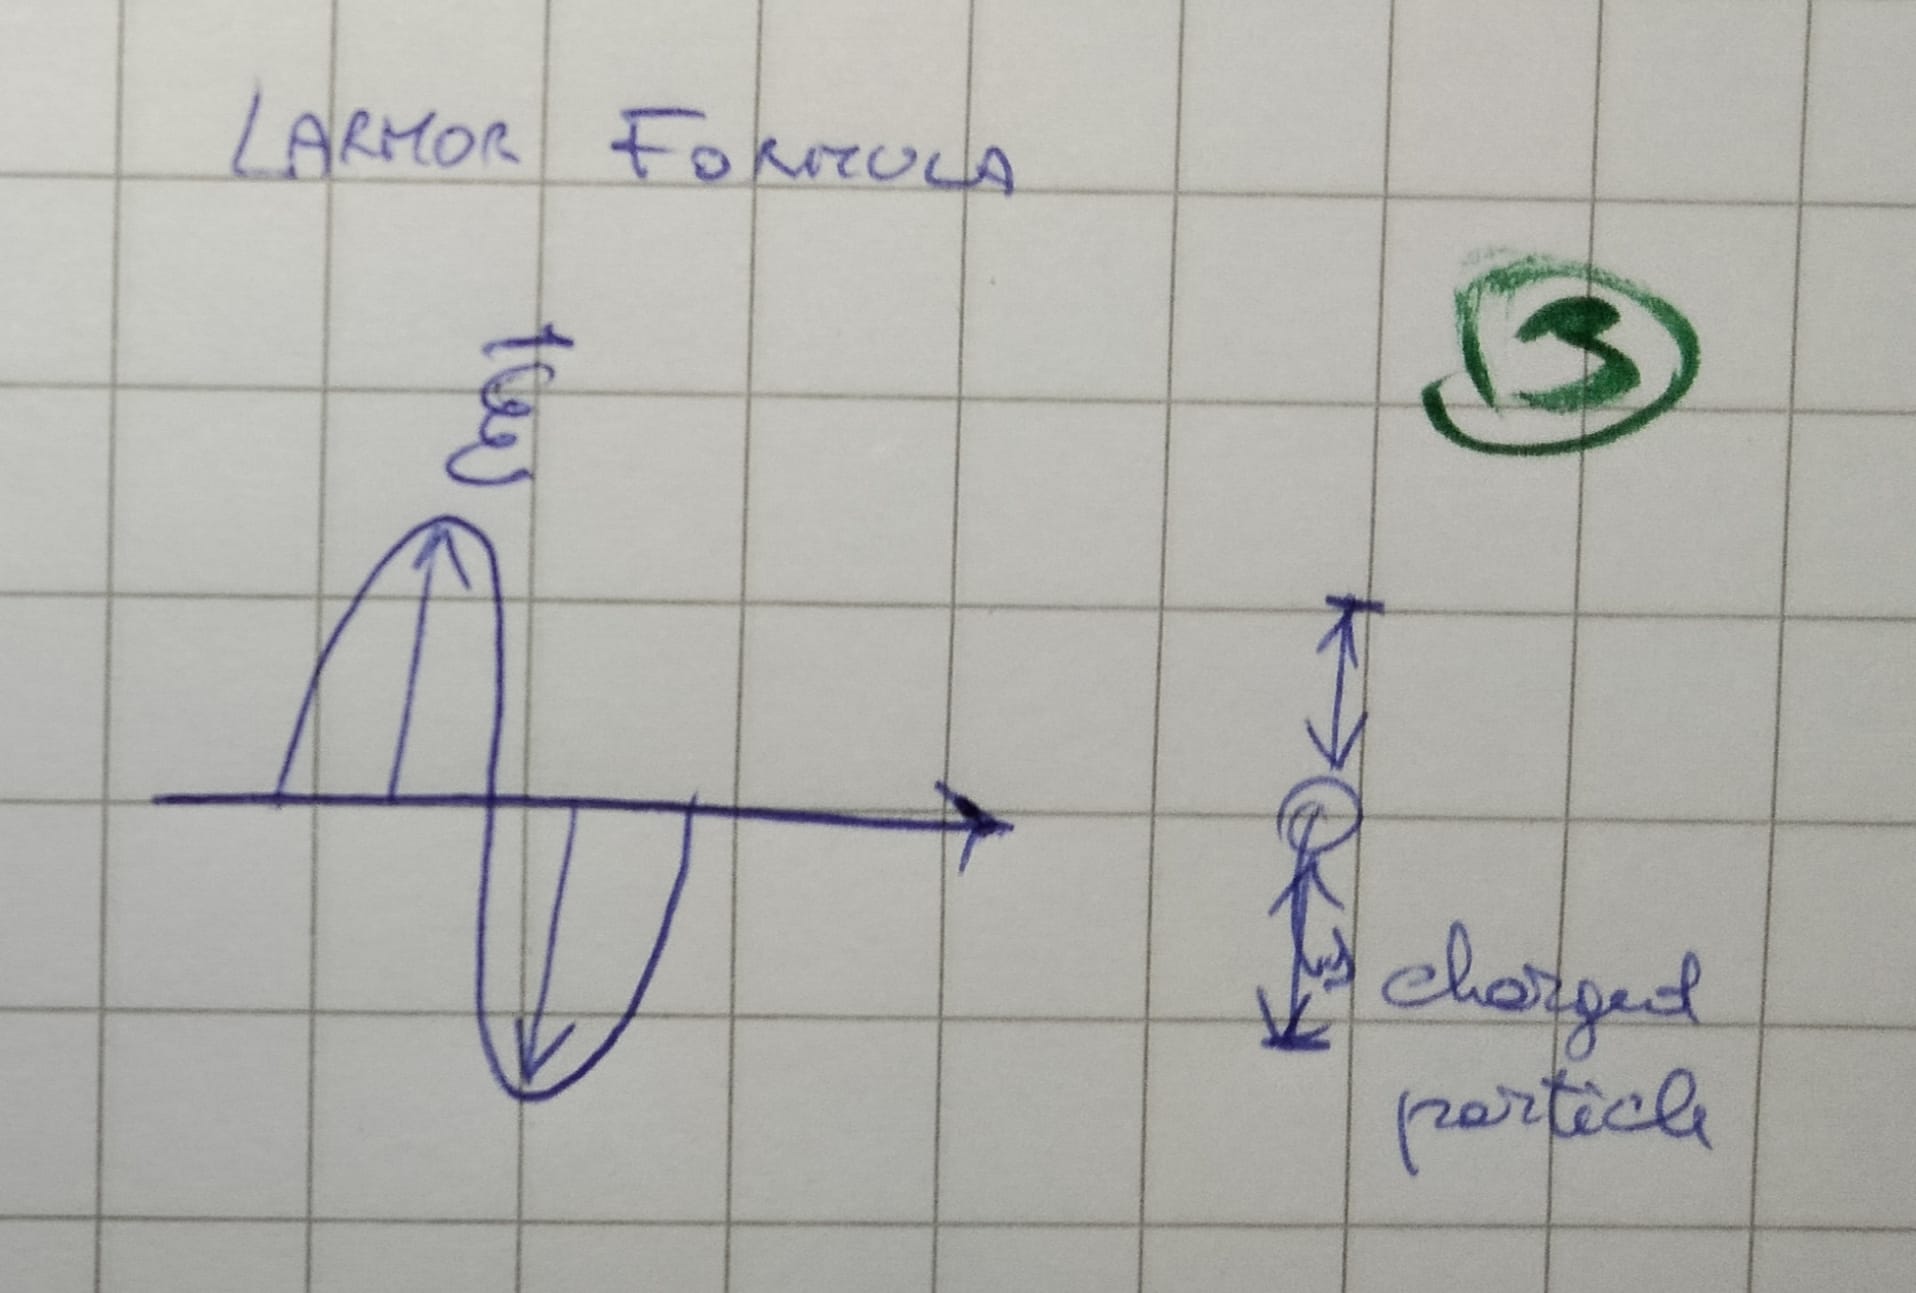 LARMOR FORMULA
3
charged
particle